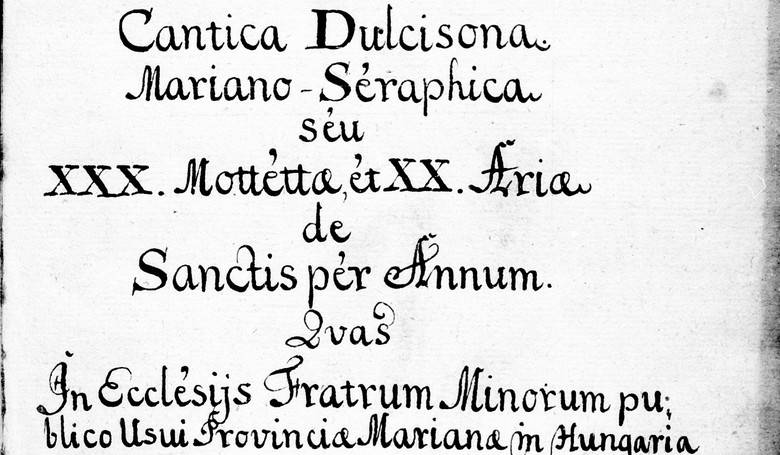 Cantica Dulcisona
Mariano-Séraphica
séu
XXX. Mottéttæ, ét XX. Ariæ
de
Sanctis pér Annum.
Qvas
In Ecclésijs Fratrum Minorum pu;
blico Usui Provinciæ Marianæ in Hungaria